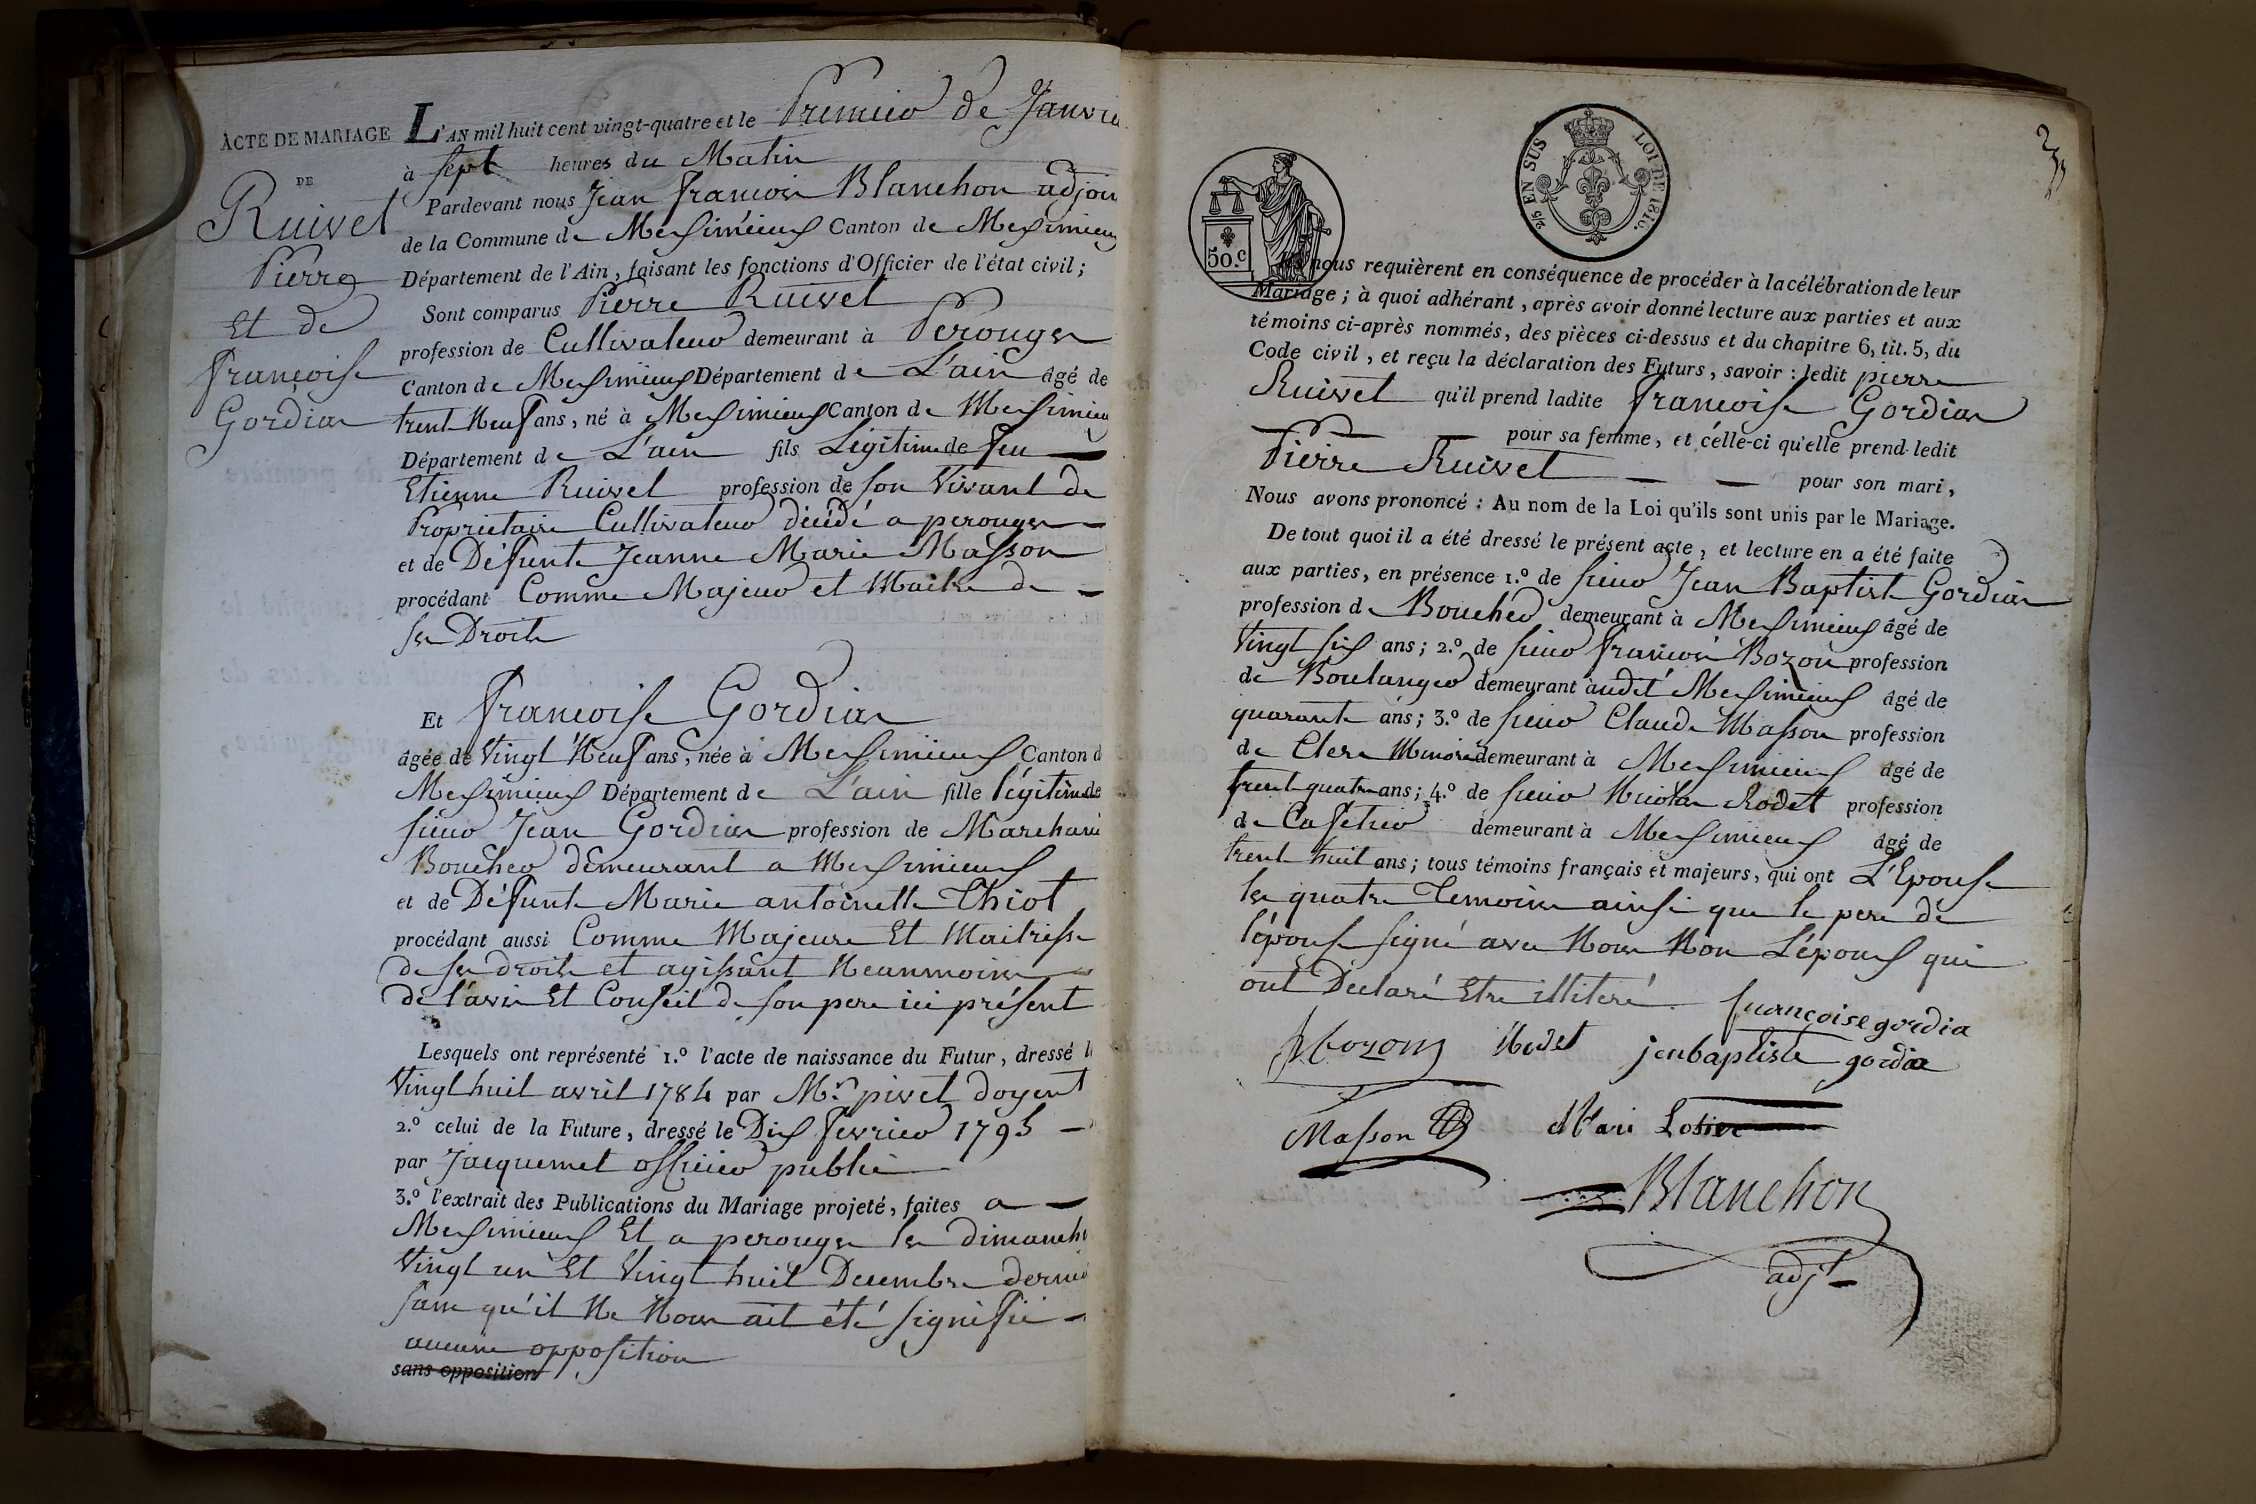 ACTE DE MARIAGE
DE
Ruivet
Pierre
Et de
françoise
Gordian
L'AN mil huit cent vingt-quatre et le Premier de Janvie
à sept heures du Matin
Pardevant nous Jean françois Blanchon adjoin
de la Commune de Meximieux Canton de Meximieux
Département de l'Ain, faisant les fonctions d'Officier de l'état civil;
Sont comparus Pierre Ruivet
profession de Cultivateur demeurant à Perouges
Canton de Meximieux Département de L'ain âgé de
trente Neuf ans, né à Meximieux Canton de Meximieux
Département de L'ain fils Légitime de feu
Etienne Ruivet profession de son Vivant de
Propriétaire Cultivateur décédé a perouges
et de Défunte Jeanne Marie Masson
procédant Comme Majeur et Maitre de
ses Droits
Et françoise Gordian
âgée de Vingt Neuf ans, née à Meximieux Canton d
Meximieux Département de L'ain fille légitime de
sieur Jean Gordian profession de Marchand
Boucher demeurant a Meximieux
et de Défunte Marie antoinette Thiot
procédant aussi Comme Majeure Et Maitresse
de ses droits et agissant Neanmoins
de l'avis Et Conseil de son pere ici présent
Lesquels ont représenté 1.º l'acte de naissance du Futur, dressé le
Vingt huit avril 1784 par Mr. pivet doyent
2.º celui de la Future, dressé le Dix fevrier 1795
par Jacquemet officier public
3.º l'extrait des Publications du Mariage projeté, faites a
Meximieux Et a perouges les dimanche
Vingt un Et Vingt huit Decembre dernier
sans qu'il Ne Nous ait été signifié
aucune opposition
sans opposition
2/5 EN SUS
LOI DE 1816.
50.c
nous requièrent en conséquence de procéder à la célébration de leur
Mariage; à quoi adhérant, après avoir donné lecture aux parties et aux
témoins ci-après nommés, des pièces ci-dessus et du chapitre 6, tit. 5, du
Code civil, et reçu la déclaration des Futurs, savoir: ledit pierre
Ruivet qu'il prend ladite françoise Gordian
pour sa femme, et celle-ci qu'elle prend ledit
Pierre Ruivet pour son mari,
Nous avons prononcé: Au nom de la Loi qu'ils sont unis par le Mariage.
De tout quoi il a été dressé le présent acte, et lecture en a été faite
aux parties, en présence 1.º de sieur Jean Baptiste Gordian
profession de Boucher demeurant à Meximieux âgé de
Vingt six ans; 2.º de sieur françois Bozon profession
de Boulanger demeurant audit Meximieux âgé de
quarante ans; 3.º de sieur Claude Masson profession
de Clerc Minoré demeurant à Meximieux âgé de
trente quatre ans; 4.º de sieur Nicolas Rodet profession
de Cafetier demeurant à Meximieux âgé de
trente huit ans; tous témoins français et majeurs, qui ont L'Epouse
les quatre Temoins ainsi que le pere de
l'épouse signé avec Nous Non L'époux qui
ont Declaré Etre illiteré
françoise gordia
Bozon Rodet jeanbaptiste gordia
Masson
Blanchon
adjt